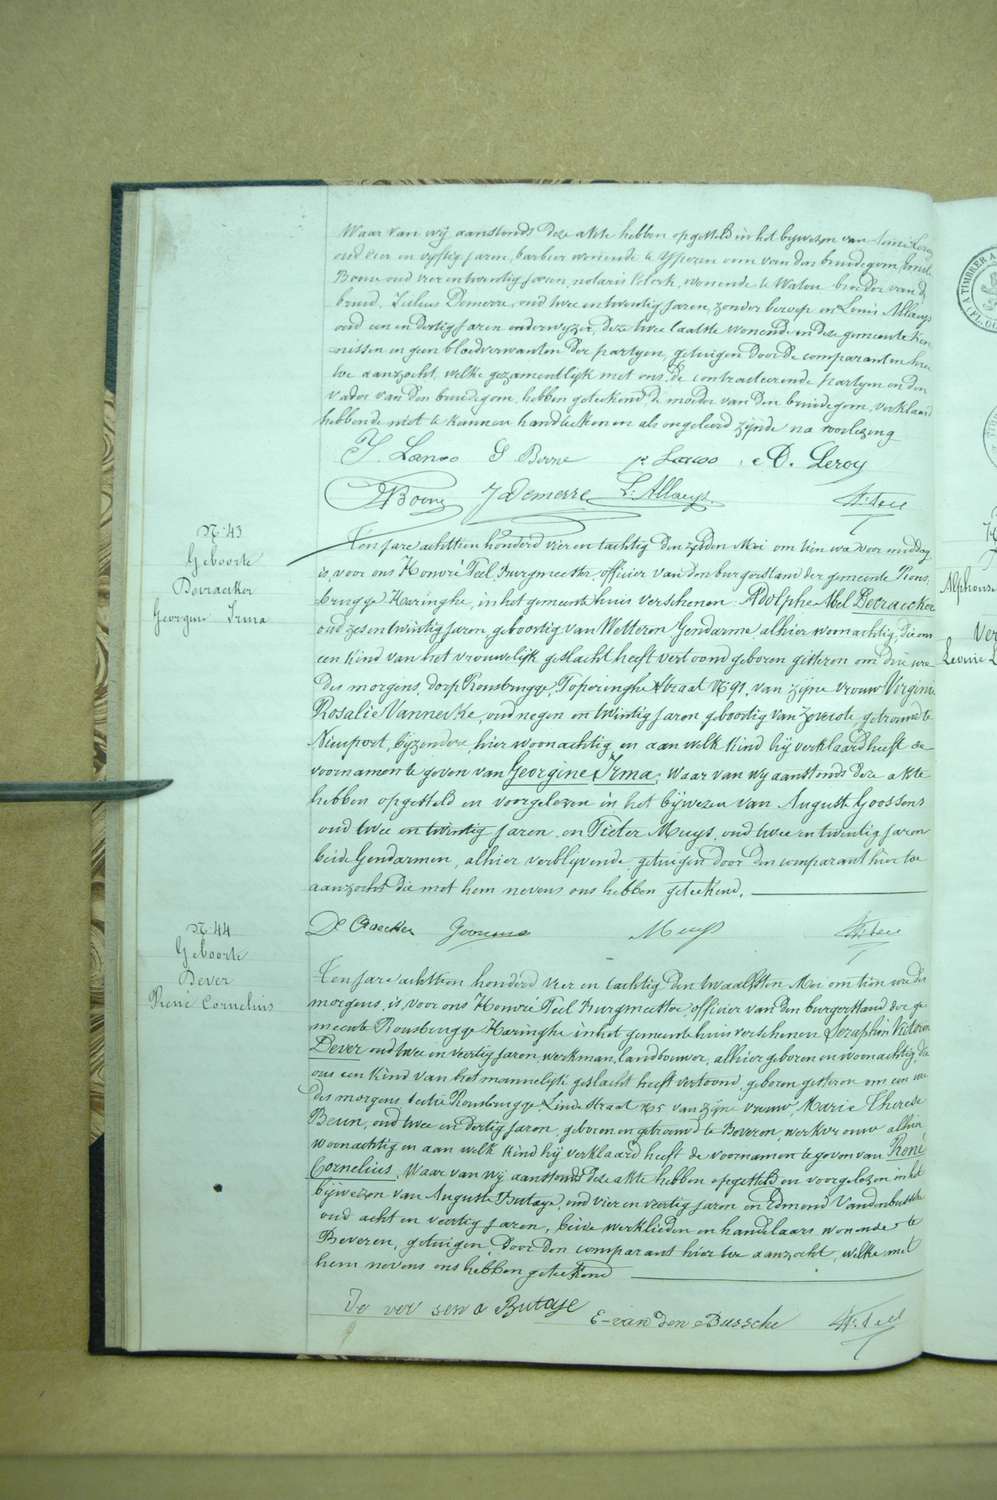 Waar van wij aanstonds deze akte hebben opgesteld in het bijwezen van
oud vier en vyftig jaren, barbier wonende te Yperen oom van den bruidegom,
Boone oud vier entwintig jaren, notaris klerk, wonende te Watou broeder van de
bruid, Julius Demerre, oud twee entwintig jaren, zonder beroep en Louis Allaeys
oud een en dertig jaren onderwyzer, deze twee laatste wonende in deze gemeente ken
nissen en geen bloedverwanten der partyen, getuigen door de comparanten hier
toe aanzocht, welke gezamentlyk met ons, de contracteerende partyen en den
vader van den bruidegom, hebben geteekend de moeder van den bruidegom, verklaard
hebbende niet te kunnen handteekenen als ongeleerd zynde na voorlezing
A. Leroy
J Demerre L. Allaeys H. Teel
N. 43
Geboorte
Deraecker
Georgine Irma
Ten jare achttien honderd vier en tachtig den zesden Mei om tien ure voor middag
is voor ons Honoré Teel, burgmeester, officier van den burgerstand der gemeente Rous
brugge Haringhe, in het gemeente huis verschenen Adolphe Abel Deraecker
oud zes en twintig jaren, geboortig van Wetteren Gendarme alhier woonachtig, die ons
een kind van het vrouwelijk geslacht heeft vertoond geboren gisteren om drie ure
des morgens, dorp Rousbrugge, Poperinghe straat N 91, van zijne vrouw Virginie
Rosalie Vannecke, oud negen en twintig jaren geboortig van Zevecote, getrouwd te
Nieuport, bijzondere, hier woonachtig en aan welk kind hij verklaard heeft de
voornamen te geven van Georgine Irma. Waar van wij aanstonds deze akte
hebben opgesteld en voorgelezen in het bijwezen van August Goossens
oud twee en twintig jaren en Pieter Muys, oud twee en twintig jaren
beide Gendarmen, alhier verblijvende getuigen door den comparant hier toe
aanzocht die met hem nevens ons hebben geteekend.
De Craecker Goossens Muys H. Teel
N. 44
Geboorte
Dever
René Cornelius
Ten jare achttien honderd vier en tachtig den twaalfsten Mei om tien ure des
morgens, is voor ons Honoré Teel, burgmeester, officier van den burgerstand der ge
meente Rousbrugge Haringhe in het gemeente huis verschenen Seraphin Victor
Dever oud twee en veertig jaren werkman, landbouwer, alhier geboren en woonachtig, die
ons een kind van het mannelijk geslacht heeft vertoond, geboren gisteren om een ure
des morgens sectie Rousbrugge, Linde straat N 5 van zijne vrouw, Marie Therese
Beun, oud twee en dertig jaren, geboren en getrouwd te Beveren, werkvrouw alhier
woonachtig en aan welk kind hij verklaard heeft de voornamen te geven van René
Cornelius. Waar van wij aanstonds deze akte hebben opgesteld en voorgelezen in het
bijwezen van Auguste Butaye, oud vier en veertig jaren en Edmond Vandenbussche
oud acht en veertig jaren, beide werklieden en handelaars wonende te
Beveren, getuigen door den comparant hier toe aanzocht, welke met
hem nevens ons hebben geteekend
De ver Butaye E-van den Bussche H. Teel